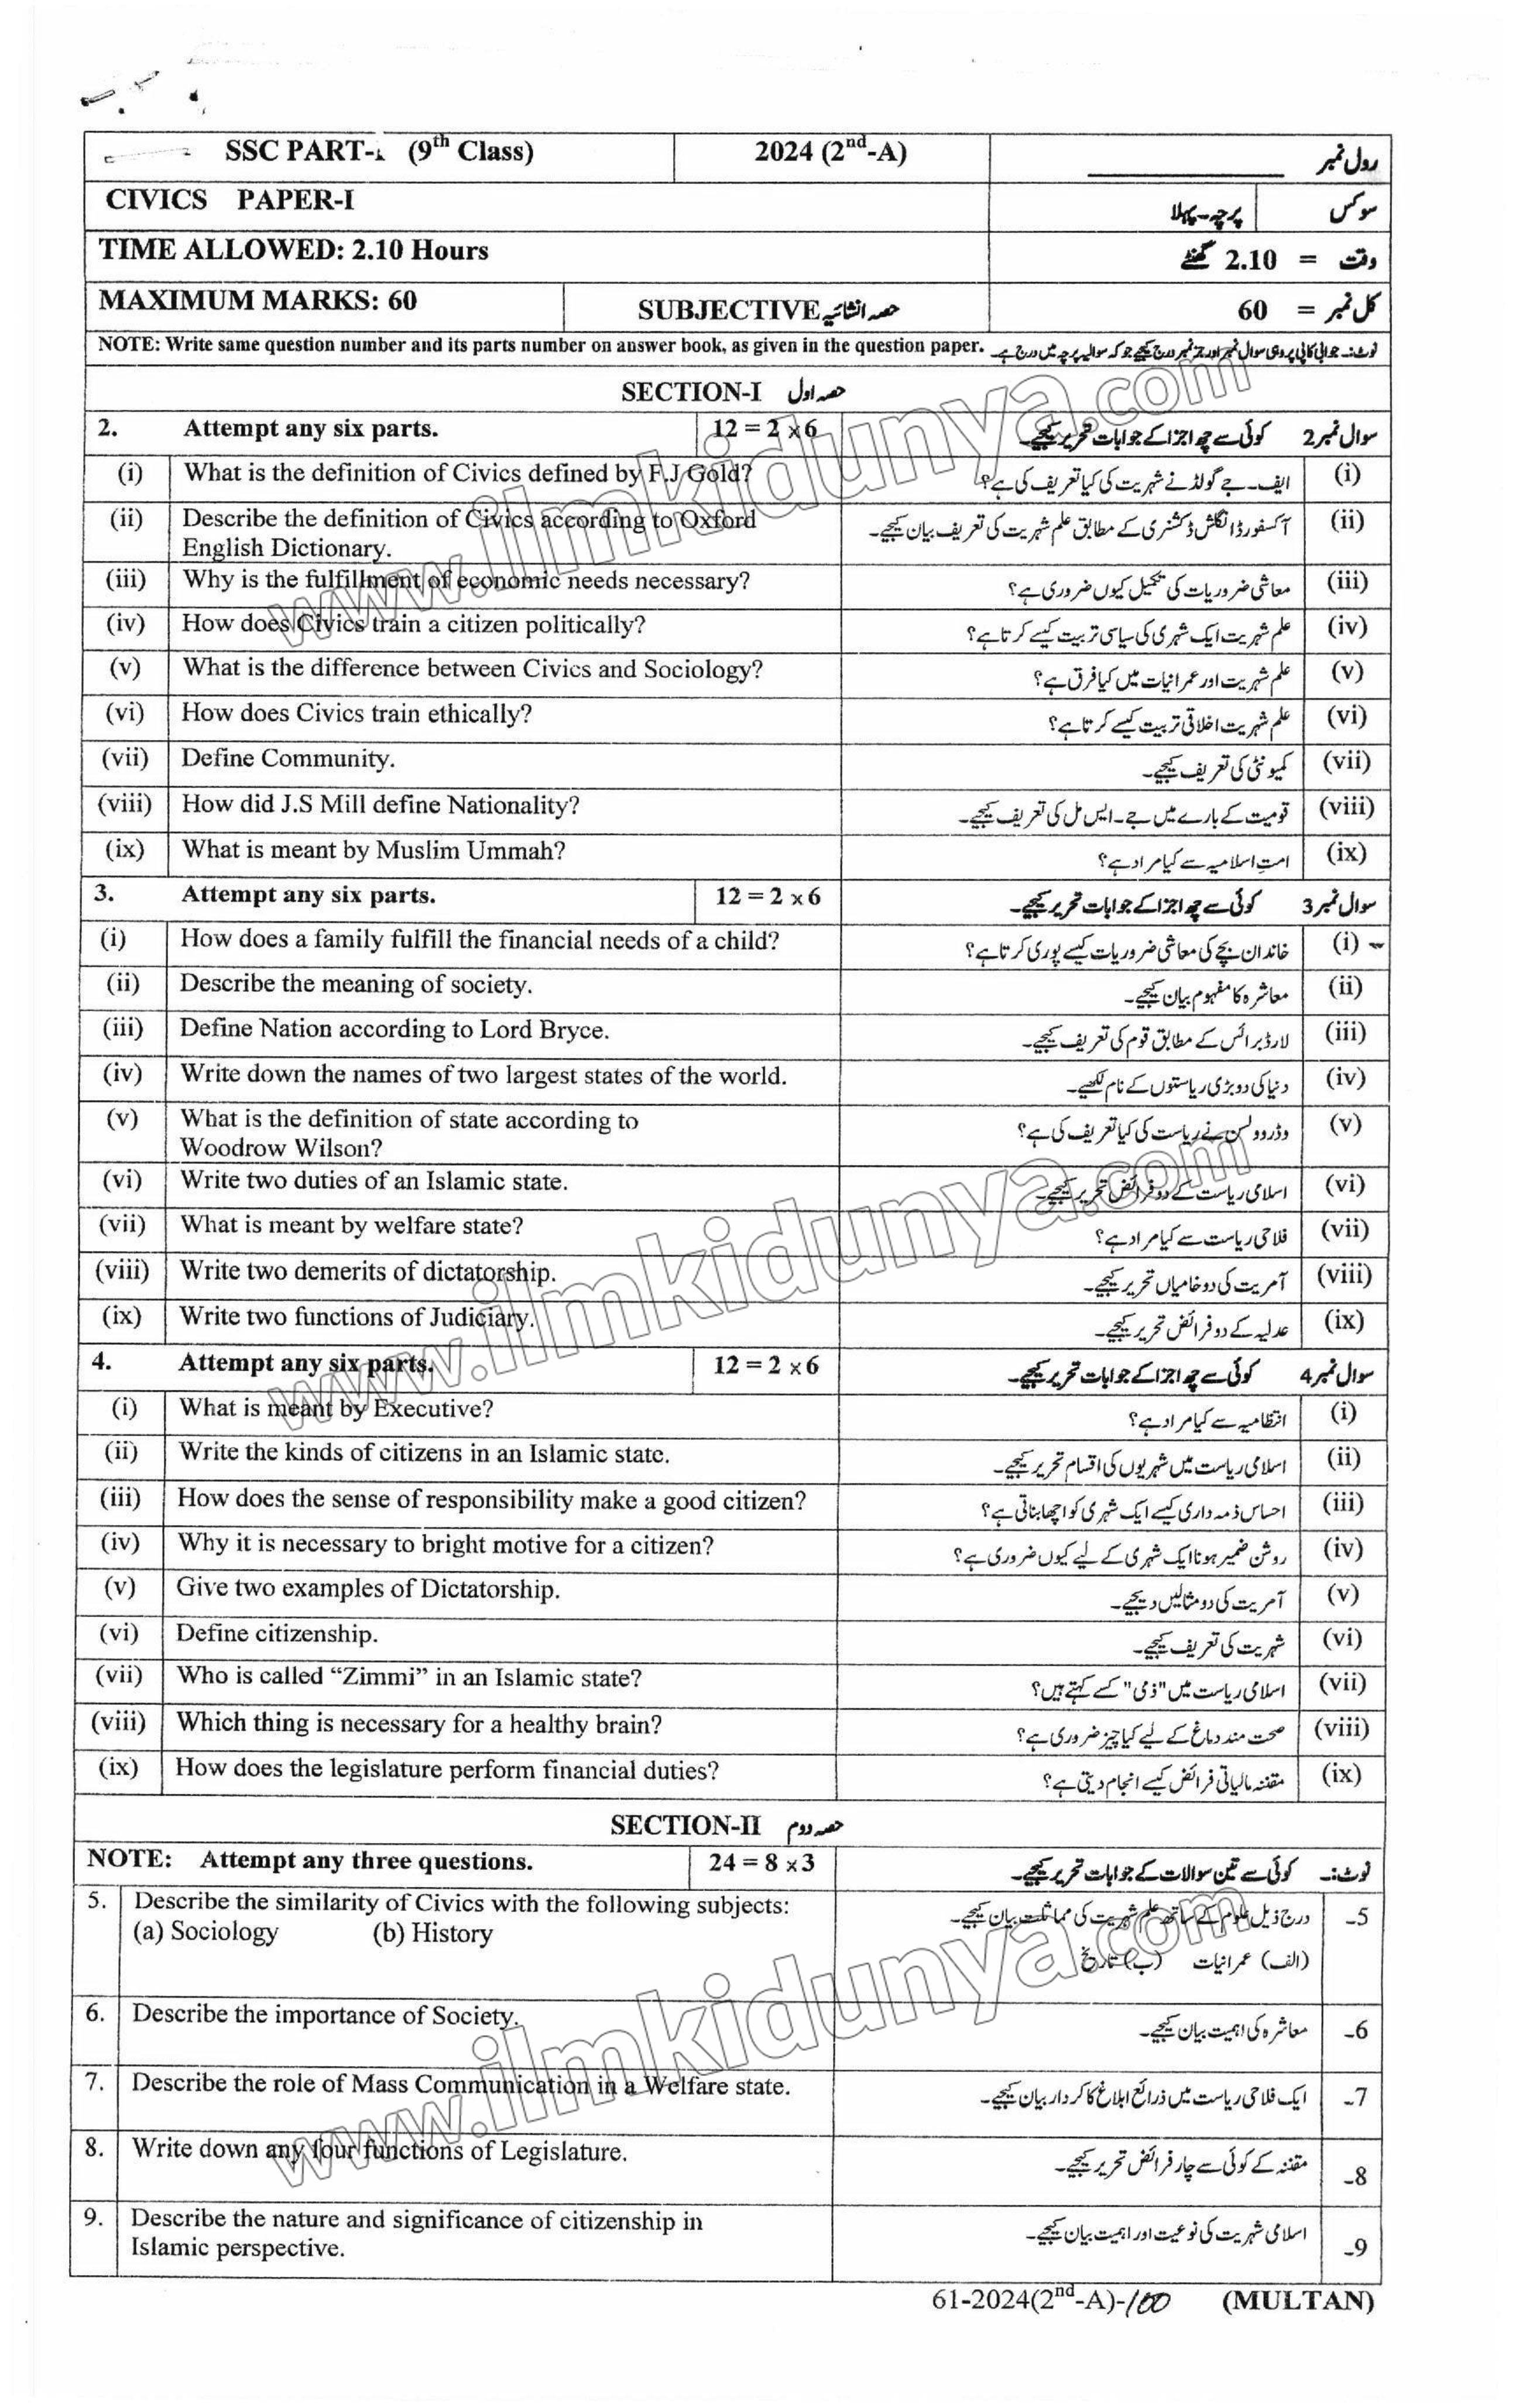 SSC PART-1 (9th Class) 2024 (2nd-A) رول نمبر
CIVICS PAPER-I سوکس پرچہ-پہلا
TIME ALLOWED: 2.10 Hours وقت = 2.10 گھنٹے
MAXIMUM MARKS: 60 SUBJECTIVE حصہ انشائیہ کل نمبر = 60
NOTE: Write same question number and its parts number on answer book, as given in the question paper. نوٹ:۔ جوابی کاپی پر وہی سوال نمبر اور جز نمبر درج کیجیے جو کہ سوالیہ پرچہ میں درج ہے۔
SECTION-I حصہ اول
2. Attempt any six parts. 12 = 2 x 6 سوال نمبر 2 کوئی سے چھ اجزا کے جوابات تحریر کیجیے۔
(i) What is the definition of Civics defined by F.J Gold? ایف۔جے گولڈ نے شہریت کی کیا تعریف کی ہے؟ (i)
(ii) Describe the definition of Civics according to Oxford آکسفورڈ انگلش ڈکشنری کے مطابق علم شہریت کی تعریف بیان کیجیے۔ (ii)
English Dictionary.
(iii) Why is the fulfillment of economic needs necessary? معاشی ضروریات کی تکمیل کیوں ضروری ہے؟ (iii)
(iv) How does Civics train a citizen politically? علم شہریت ایک شہری کی سیاسی تربیت کیسے کرتا ہے؟ (iv)
(v) What is the difference between Civics and Sociology? علم شہریت اور عمرانیات میں کیا فرق ہے؟ (v)
(vi) How does Civics train ethically? علم شہریت اخلاقی تربیت کیسے کرتا ہے؟ (vi)
(vii) Define Community. کمیونٹی کی تعریف کیجیے۔ (vii)
(viii) How did J.S Mill define Nationality? قومیت کے بارے میں جے۔ایس مل کی تعریف کیجیے۔ (viii)
(ix) What is meant by Muslim Ummah? امتِ اسلامیہ سے کیا مراد ہے؟ (ix)
3. Attempt any six parts. 12 = 2 x 6 سوال نمبر 3 کوئی سے چھ اجزا کے جوابات تحریر کیجیے۔
(i) How does a family fulfill the financial needs of a child? خاندان بچے کی معاشی ضروریات کیسے پوری کرتا ہے؟ (i)
(ii) Describe the meaning of society. معاشرہ کا مفہوم بیان کیجیے۔ (ii)
(iii) Define Nation according to Lord Bryce. لارڈ برائس کے مطابق قوم کی تعریف کیجیے۔ (iii)
(iv) Write down the names of two largest states of the world. دنیا کی دو بڑی ریاستوں کے نام لکھیے۔ (iv)
(v) What is the definition of state according to وڈرو ولسن نے ریاست کی کیا تعریف کی ہے؟ (v)
Woodrow Wilson?
(vi) Write two duties of an Islamic state. اسلامی ریاست کے دو فرائض تحریر کیجیے۔ (vi)
(vii) What is meant by welfare state? فلاحی ریاست سے کیا مراد ہے؟ (vii)
(viii) Write two demerits of dictatorship. آمریت کی دو خامیاں تحریر کیجیے۔ (viii)
(ix) Write two functions of Judiciary. عدلیہ کے دو فرائض تحریر کیجیے۔ (ix)
4. Attempt any six parts. 12 = 2 x 6 سوال نمبر 4 کوئی سے چھ اجزا کے جوابات تحریر کیجیے۔
(i) What is meant by Executive? انتظامیہ سے کیا مراد ہے؟ (i)
(ii) Write the kinds of citizens in an Islamic state. اسلامی ریاست میں شہریوں کی اقسام تحریر کیجیے۔ (ii)
(iii) How does the sense of responsibility make a good citizen? احساس ذمہ داری کیسے ایک شہری کو اچھا بناتی ہے؟ (iii)
(iv) Why it is necessary to bright motive for a citizen? روشن ضمیر ہونا ایک شہری کے لیے کیوں ضروری ہے؟ (iv)
(v) Give two examples of Dictatorship. آمریت کی دو مثالیں دیجیے۔ (v)
(vi) Define citizenship. شہریت کی تعریف کیجیے۔ (vi)
(vii) Who is called “Zimmi” in an Islamic state? اسلامی ریاست میں "ذمی" کسے کہتے ہیں؟ (vii)
(viii) Which thing is necessary for a healthy brain? صحت مند دماغ کے لیے کیا چیز ضروری ہے؟ (viii)
(ix) How does the legislature perform financial duties? مقننہ مالیاتی فرائض کیسے انجام دیتی ہے؟ (ix)
SECTION-II حصہ دوم
NOTE: Attempt any three questions. 24 = 8 x 3 نوٹ:۔ کوئی سے تین سوالات کے جوابات تحریر کیجیے۔
5. Describe the similarity of Civics with the following subjects: درج ذیل علوم کے ساتھ علم شہریت کی مماثلت بیان کیجیے۔ 5۔
(a) Sociology (b) History (الف) عمرانیات (ب) تاریخ
6. Describe the importance of Society. معاشرہ کی اہمیت بیان کیجیے۔ 6۔
7. Describe the role of Mass Communication in a Welfare state. ایک فلاحی ریاست میں ذرائع ابلاغ کا کردار بیان کیجیے۔ 7۔
8. Write down any four functions of Legislature. مقننہ کے کوئی سے چار فرائض تحریر کیجیے۔ 8۔
9. Describe the nature and significance of citizenship in اسلامی شہریت کی نوعیت اور اہمیت بیان کیجیے۔ 9۔
Islamic perspective.
61-2024(2nd-A)-100 (MULTAN)
www.ilmkidunya.com
www.ilmkidunya.com
www.ilmkidunya.com